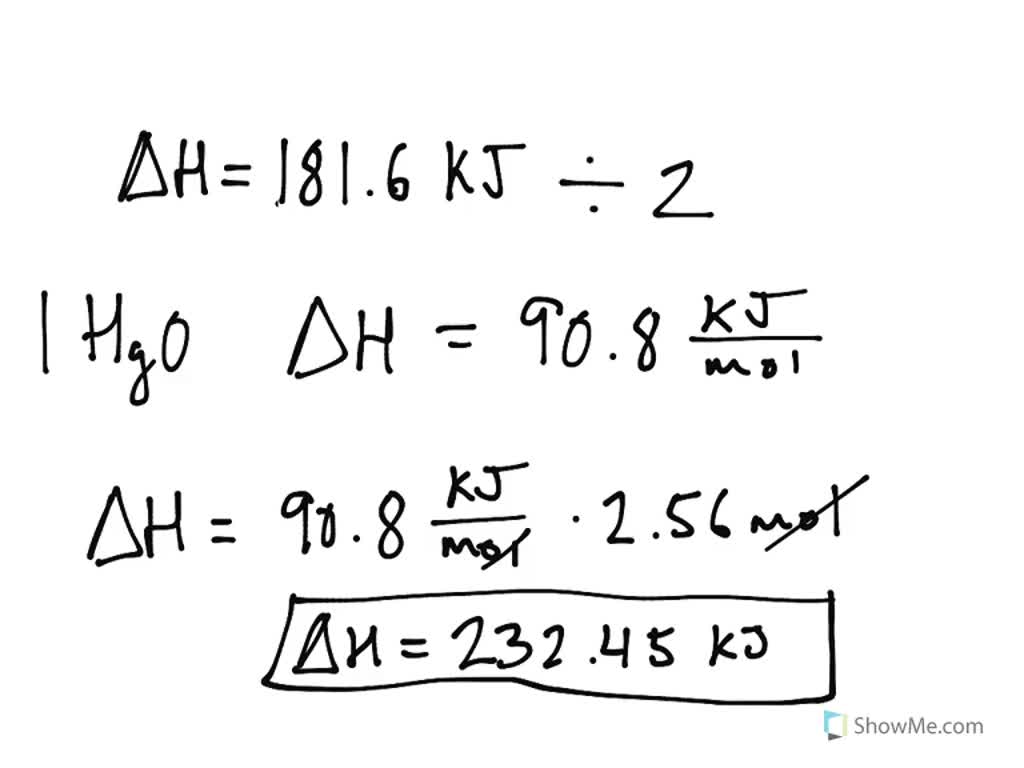 ΔH = 181.6 KJ ÷ 2
1 HgO ΔH = 90.8 KJ/mol
ΔH = 90.8 KJ/mol · 2.56 mol
ΔH = 232.45 KJ
ShowMe.com